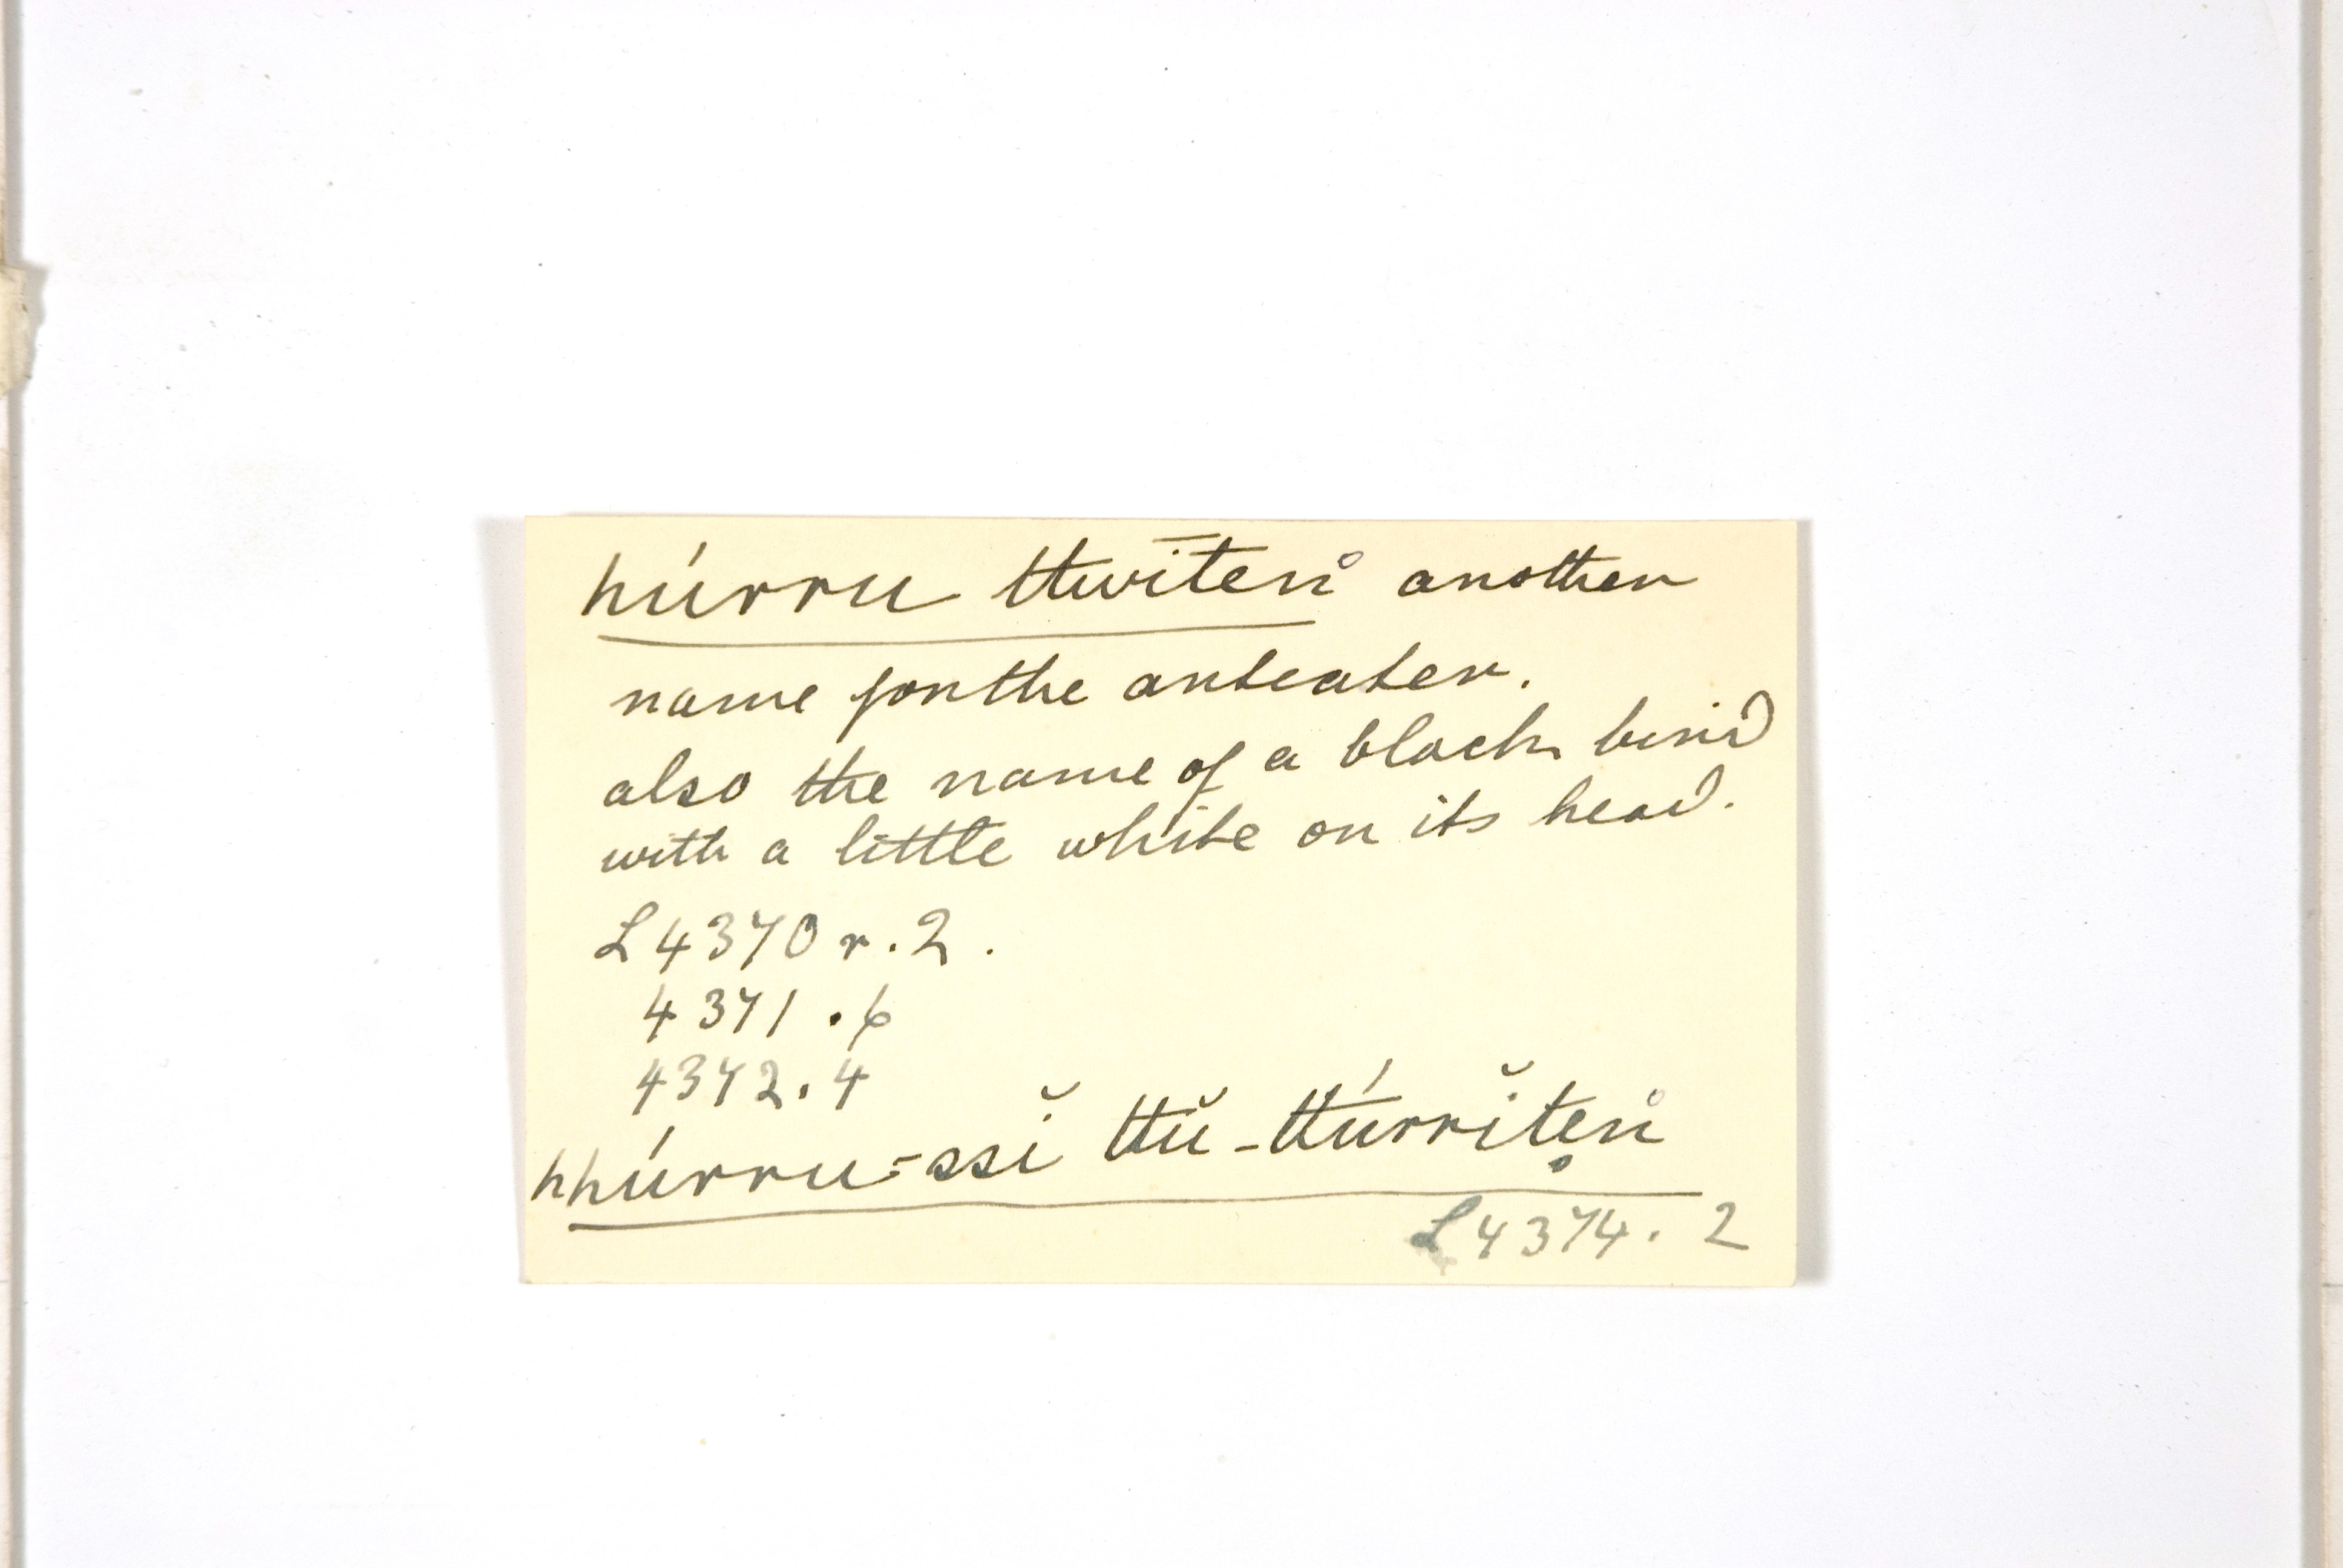 húrru ttwīteṅ another
name for the anteater.
also the name of a black bird
with a little white on its head.
L4370 r. 2.
4371 . 6
4372. 4
hhúrru-ssĭ ttŭ-ttúrrĭteṅ
L4374. 2